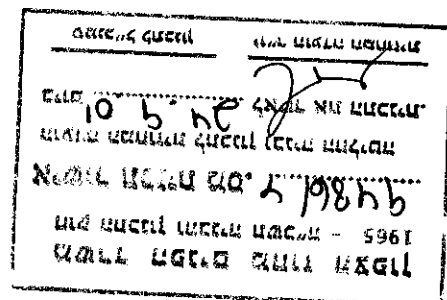 משרד הפנים מחוז הצפון
חוק התכנון והבניה תשכ"ה - 1965
אישור תכנית מס.
הועדה המחוזית לתכנון ובניה החליטה
ביום לאשר את התכנית.
סמנכ"ל לתכנון יו"ר הועדה המחוזית